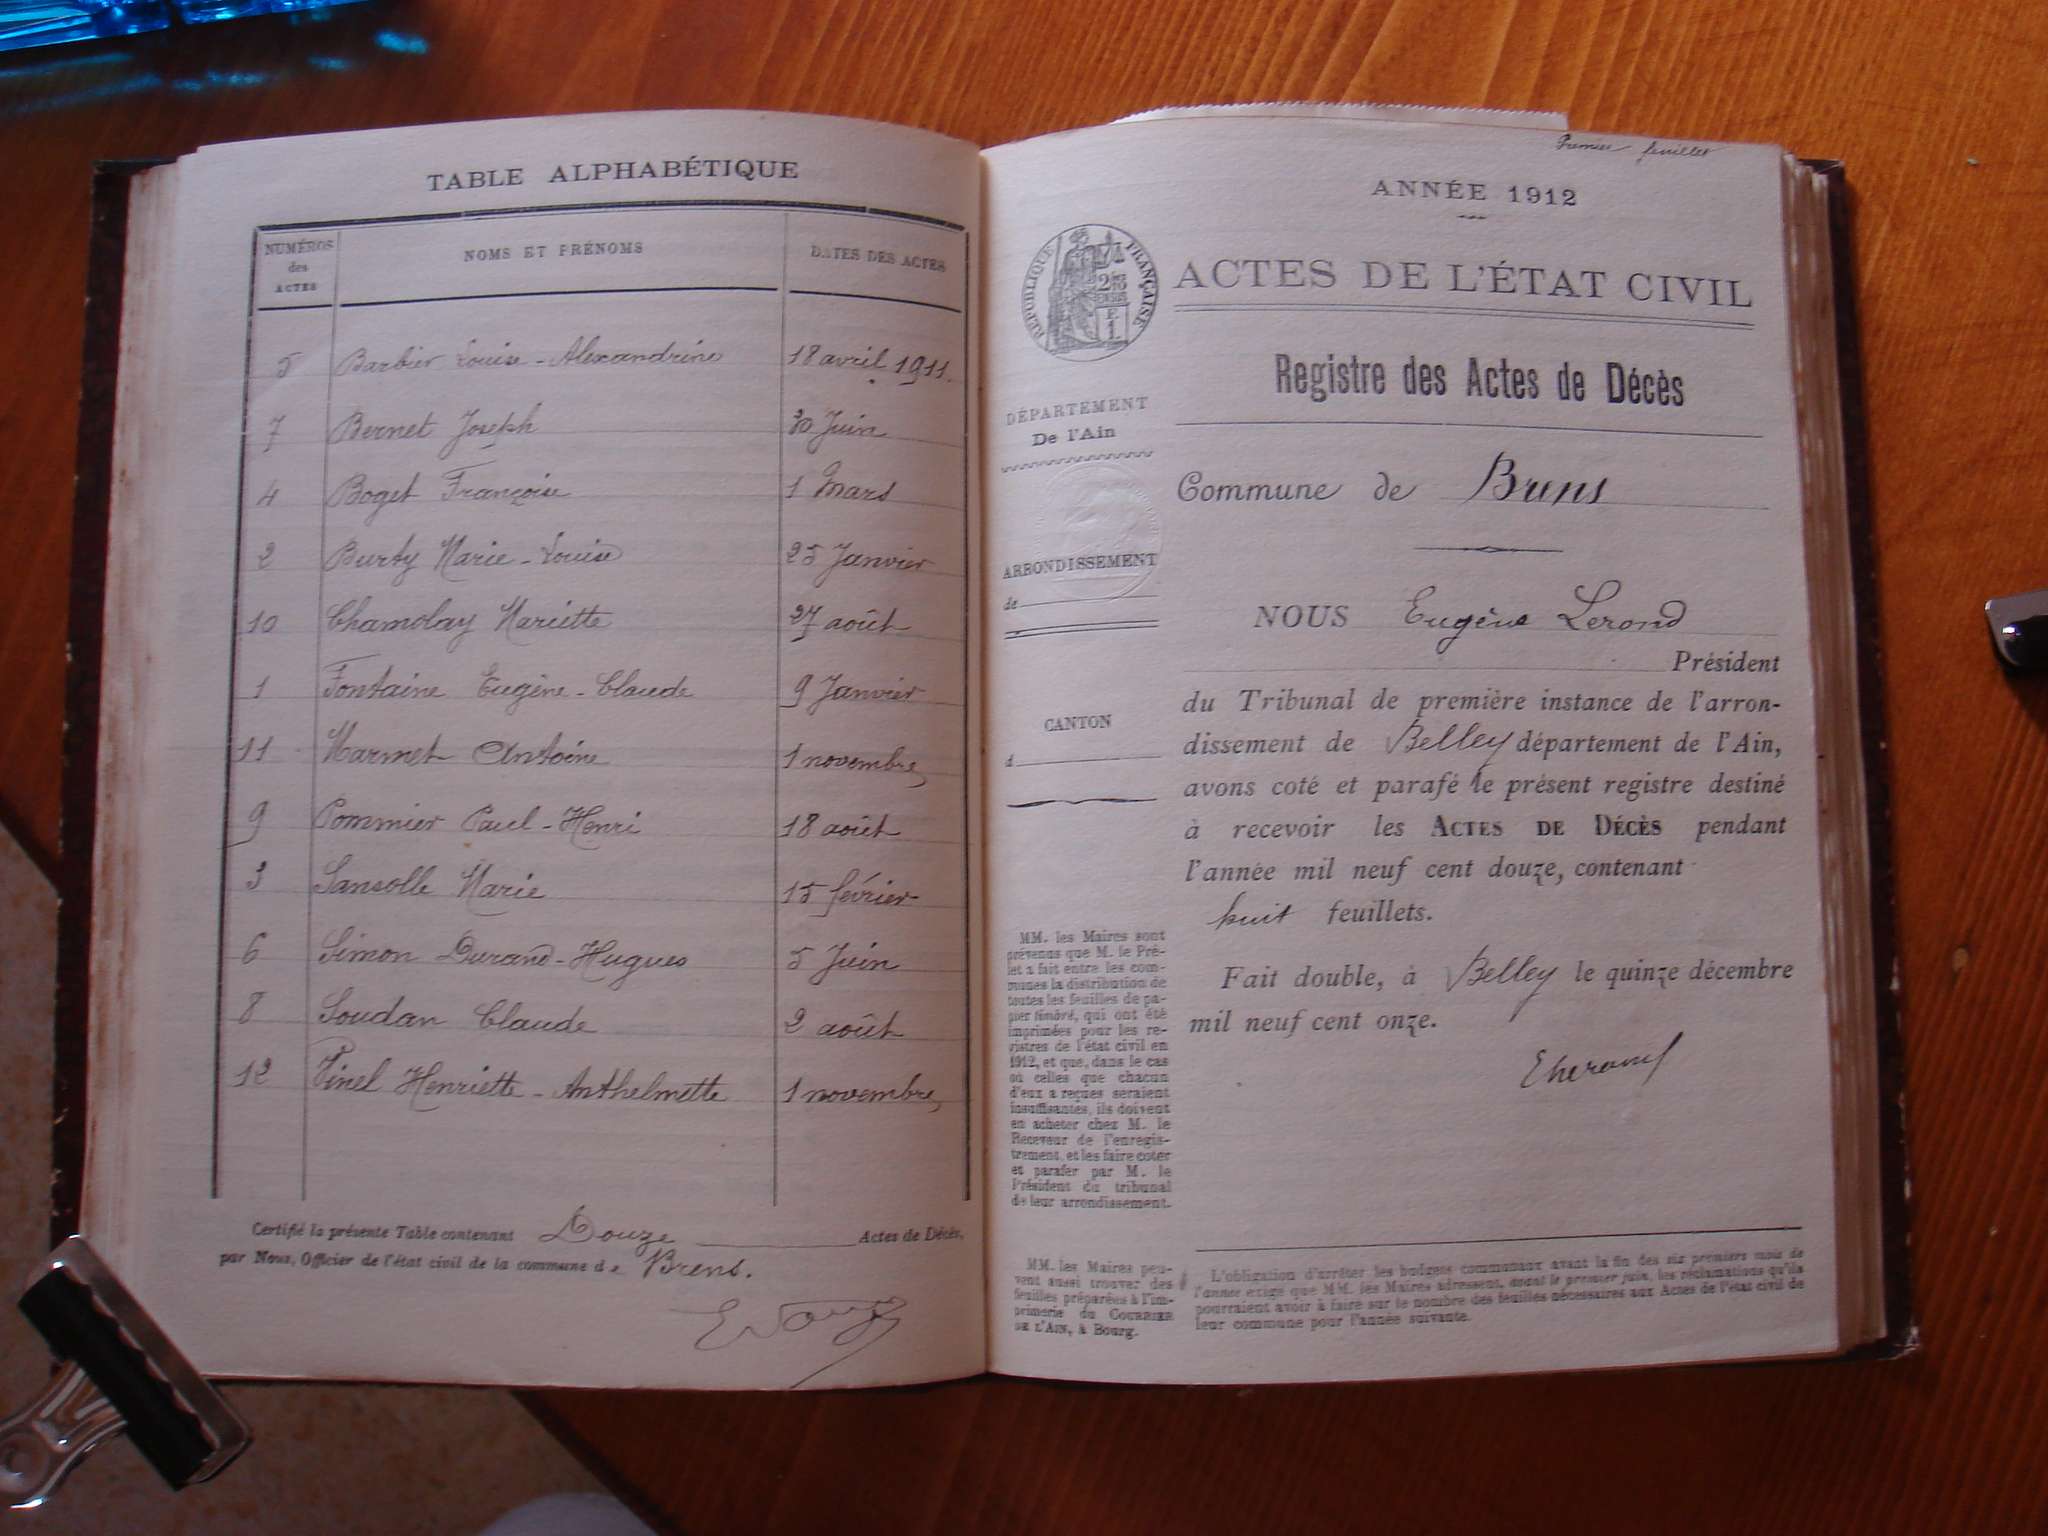 TABLE ALPHABÉTIQUE
NUMÉROS des ACTES NOMS ET PRÉNOMS DATES DES ACTES
5 Barbier Louise-Alexandrine 18 avril 1911.
7 Bernet Joseph 30 Juin
4 Boget Françoise 1 Mars
2 Burty Marie-Louise 25 Janvier
10 Chamolay Mariette 27 août
1 Fontaine Eugène-Claude 9 Janvier
11 Marmet Antoine 1 novembre,
9 Pommier Paul-Henri 18 août
3 Sansolle Marie 15 février
6 Simon Durand-Hugues 5 Juin
8 Soudan Claude 2 août
12 Vinel Henriette-Anthelmette 1 novembre,
Certifié la présente Table contenant Douze Actes de Décès,
par Nous, Officier de l'état civil de la commune de Brens.
Premier feuillet
ANNÉE 1912
RÉPUBLIQUE FRANÇAISE
ACTES DE L'ÉTAT CIVIL
Registre des Actes de Décès
DÉPARTEMENT
De l'Ain
Commune de Brens
ARRONDISSEMENT
de
CANTON
d
NOUS Eugène Lerond
Président
du Tribunal de première instance de l'arron-
dissement de Belley département de l'Ain,
avons coté et parafé le présent registre destiné
à recevoir les ACTES DE DÉCÈS pendant
l'année mil neuf cent douze, contenant
huit feuillets.
Fait double, à Belley le quinze décembre
mil neuf cent onze.
MM. les Maires sont
prévenus que M. le Pré-
fet a fait entre les com-
munes la distribution de
toutes les feuilles de pa-
pier timbré, qui ont été
imprimées pour les re-
gistres de l'état civil en
1912, et que, dans le cas
où celles que chacun
d'eux a reçues seraient
insuffisantes, ils doivent
en acheter chez M. le
Receveur de l'enregis-
trement, et les faire coter
et parafer par M. le
Président du tribunal
de leur arrondissement.
MM. les Maires peu-
vent aussi trouver des
feuilles préparées à l'im-
primerie du COURRIER
DE L'AIN, à Bourg.
L'obligation d'arrêter les budgets communaux avant la fin des six premiers mois de
l'année exige que MM. les Maires adressent, avant le premier juin, les réclamations qu'ils
pourraient avoir à faire sur le nombre des feuilles nécessaires aux Actes de l'état civil de
leur commune pour l'année suivante.